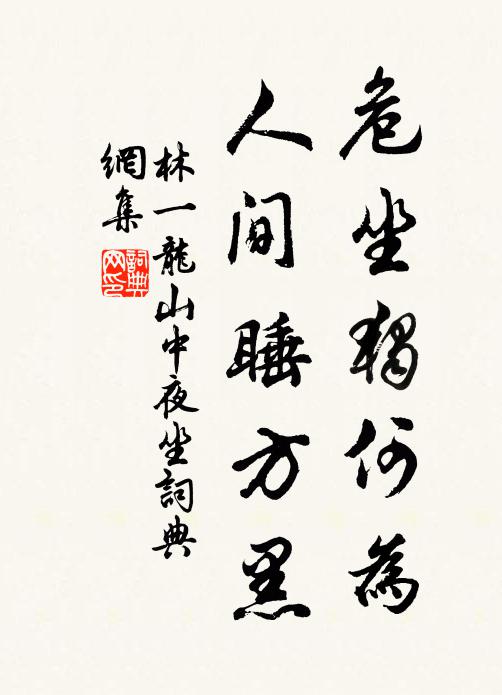 危坐獨何為
人间睡方黑
林一龍山中夜坐詞典
網集
詞典
网印